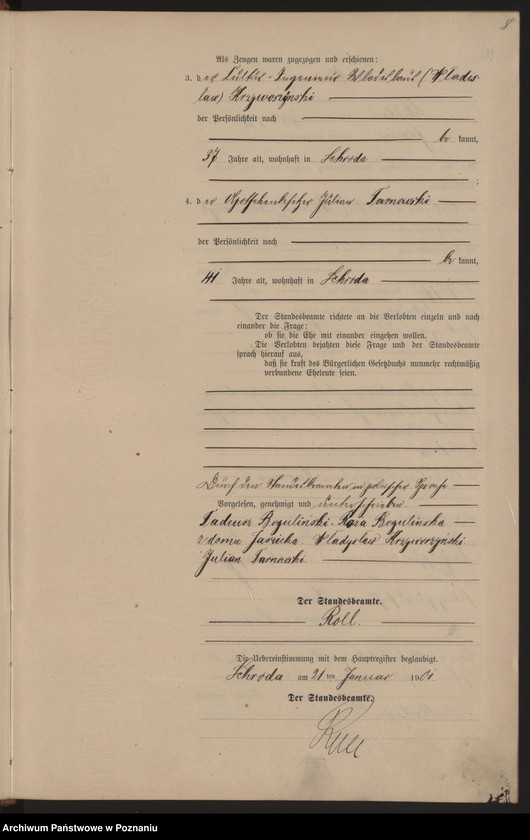 8
Als Zeugen waren zugezogen und erschienen:
3. der Kultur-Ingenieur Wladislaus (Wladis-
law) Krzyworzynski
der Persönlichkeit nach
be kannt,
37 Jahre alt, wohnhaft in Schroda
;
4. der Apothekenbesitzer Julian Tarnowski
der Persönlichkeit nach
be kannt,
41 Jahre alt, wohnhaft in Schroda
Der Standesbeamte richtete an die Verlobten einzeln und nach
einander die Frage:
ob sie die Ehe mit einander eingehen wollen.
Die Verlobten bejahten diese Frage und der Standesbeamte
sprach hierauf aus,
daß sie kraft des Bürgerlichen Gesetzbuchs nunmehr rechtmäßig
verbundene Eheleute seien.
Durch den Standesbeamten in polnischer Sprache
Vorgelesen, genehmigt und unterschrieben.
Tadeusz Rogulinski. Róza Rogulinska
z domu Jasicka. Wladyslaw Krzyworzynski
Julian Tarnowski.
Der Standesbeamte.
Roll.
Die Uebereinstimmung mit dem Hauptregister beglaubigt.
Schroda am 21 ten Januar 1901
Der Standesbeamte.
Roll
Archiwum Państwowe w Poznaniu